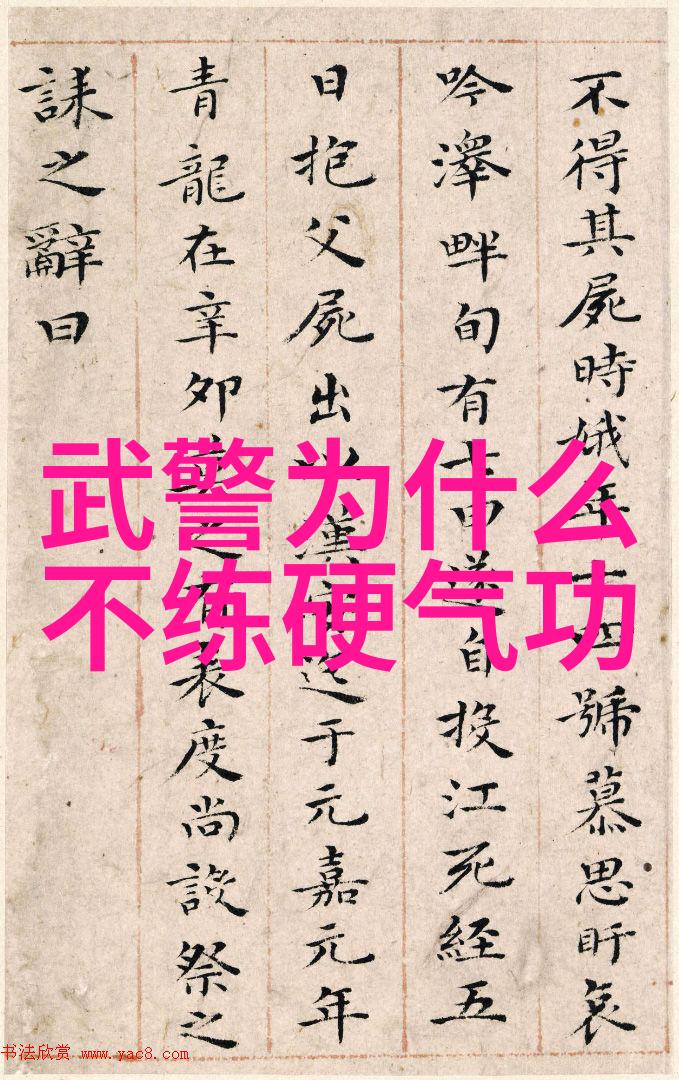 不得其屍時娥年十四號慕思盱哀
吟澤畔旬有七日遂自投江死經五
日抱父屍出以漢安迄于元嘉元年
青龍在辛夘莫之有表度尚設祭之
誄之辭曰
武警为什么
不练硬气功
书法欣赏 www.yac8.com